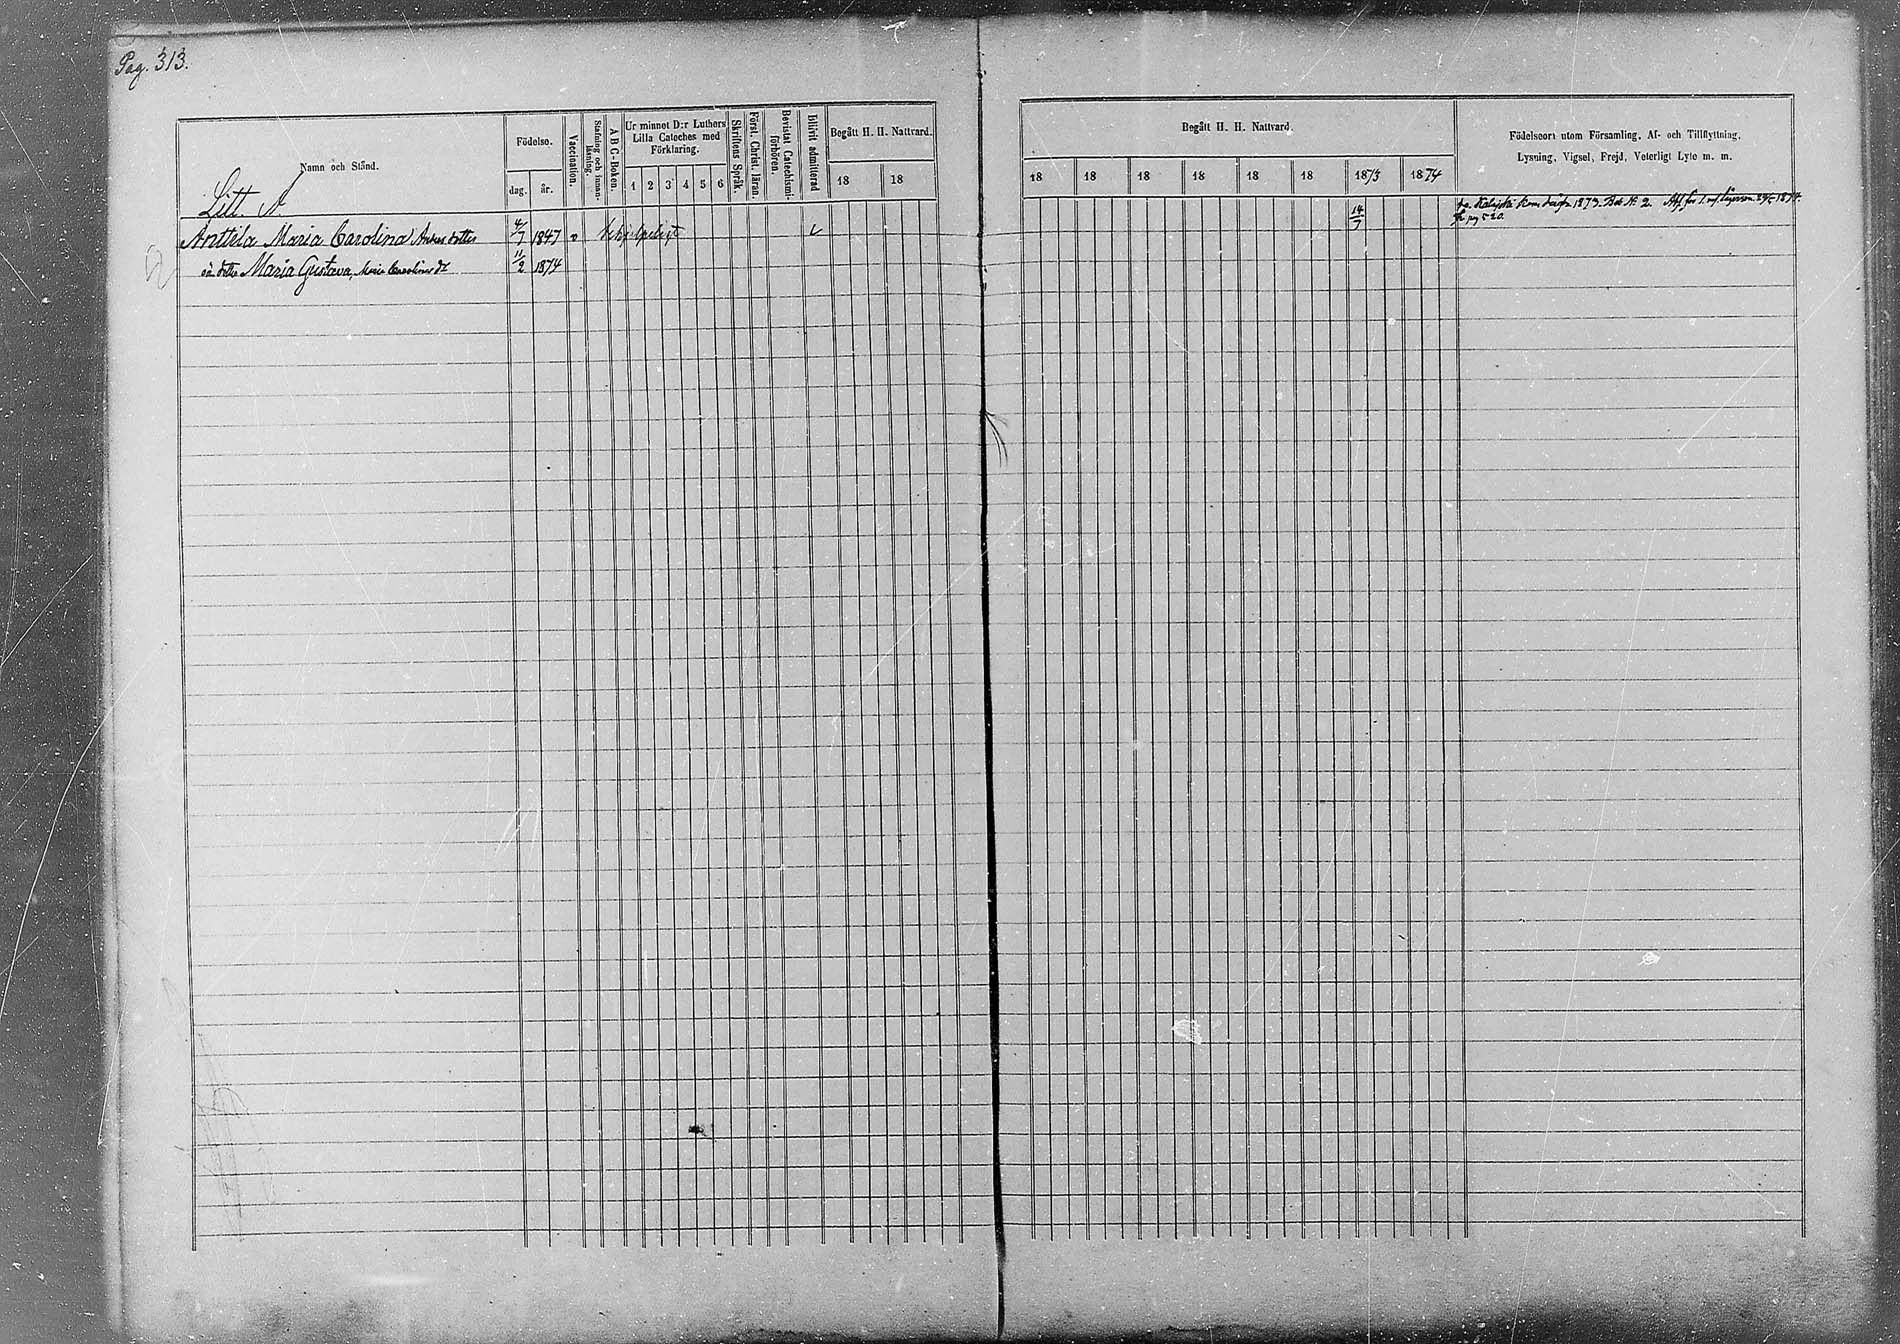 Pag. 313.
Namn och Stånd.
Födelse.
dag.
år.
Vaccination.
Stafning och innanläsning.
A B C-Boken.
Ur minnet D:r Luthers
Lilla Cateches med
Förklaring.
1 2 3 4 5 6
Skriftens Språk.
Först. Christ. läran.
Bevistat Catechismi-
förhören.
Blifvit admitterad
Begått H. H. Nattvard.
18 18
Begått H. H. Nattvard.
18 18 18 18 18 18 1873 1874
Födelseort utom Församling, Af- och Tillflyttning,
Lysning, Vigsel, Frejd, Veterligt Lyte m. m.
Litt. A.
Anttila Maria Carolina Anders dotter 4/7 1847 v 14/7
1873. Bet. N. 2. 1874.
pag 520.
dotter Maria Gustava, Maria Carolinas dr 11/2 1874